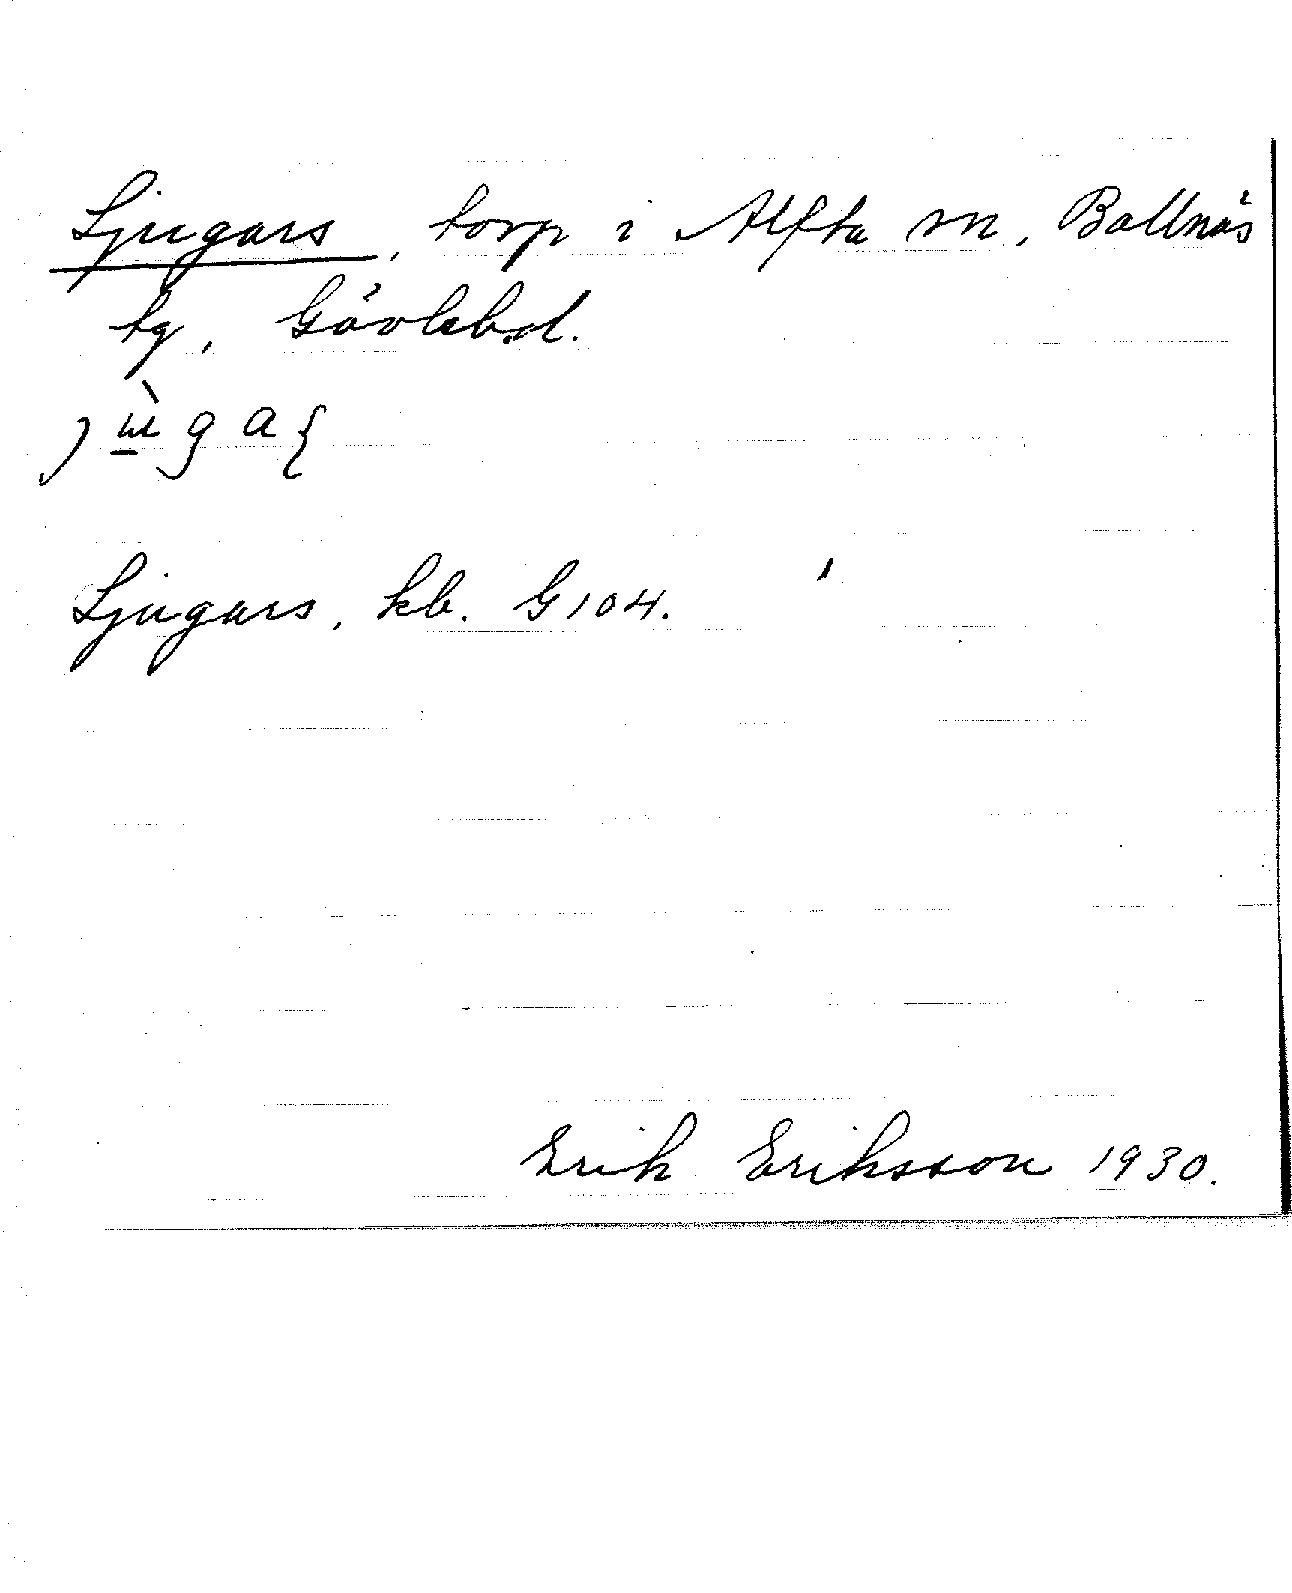 Ljugars, torp i Alfta sn, Bollnäs
tg, Gävlebsd.
Ljugars, kb. G104.
Erik Eriksson 1930.